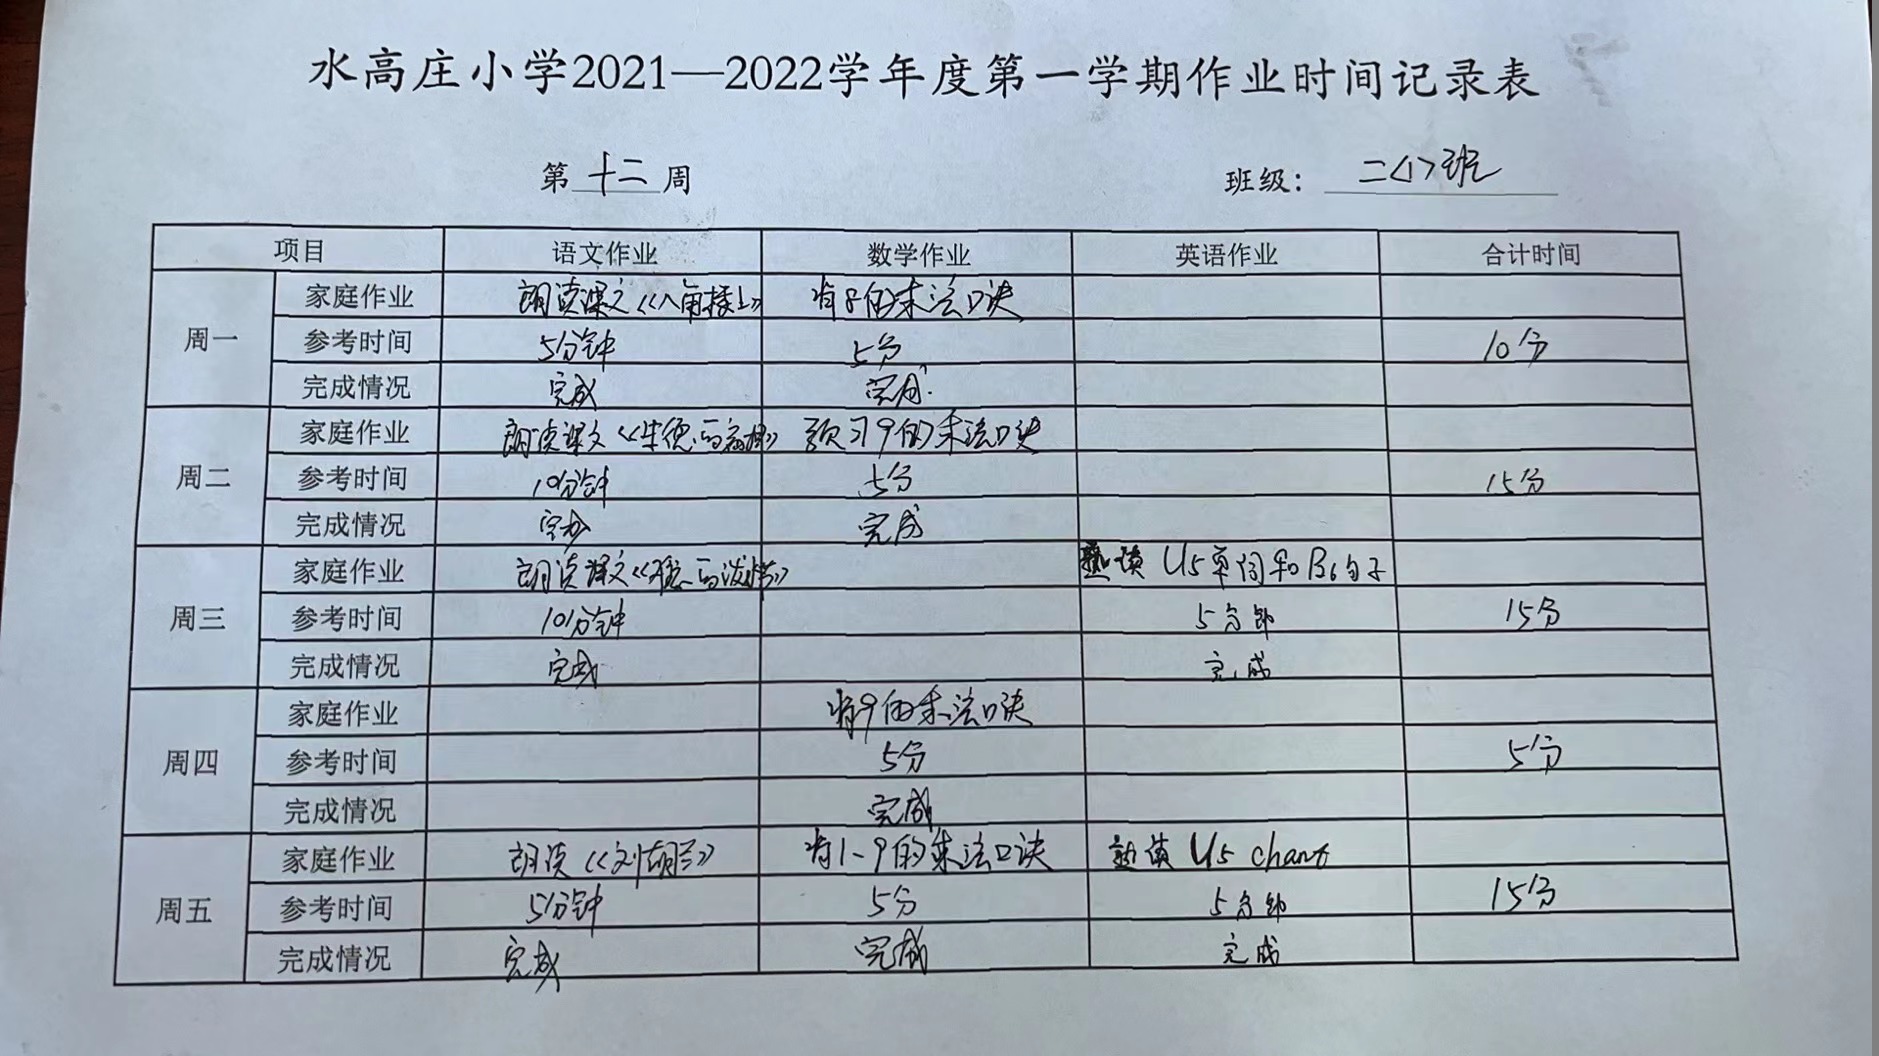 水高庄小学2021—2022学年度第一学期作业时间记录表
第 十二 周 班级： 二<1>班
项目 语文作业 数学作业 英语作业 合计时间
周一
家庭作业 朗读课文《八角楼上》 背8的乘法口诀
参考时间 5分钟 5分 10分
完成情况 完成 完成
周二
家庭作业 朗读课文 预习9的乘法口诀
参考时间 10分钟 5分 15分
完成情况 完成 完成
周三
家庭作业 朗读课文 熟读 U5单词和B6句子
参考时间 10分钟 5分钟 15分
完成情况 完成 完成
周四
家庭作业 背9的乘法口诀
参考时间 5分 5分
完成情况 完成
周五
家庭作业 朗读《刘胡兰》 背1-9的乘法口诀 熟读 U5 chant
参考时间 5分钟 5分 5分钟 15分
完成情况 完成 完成 完成